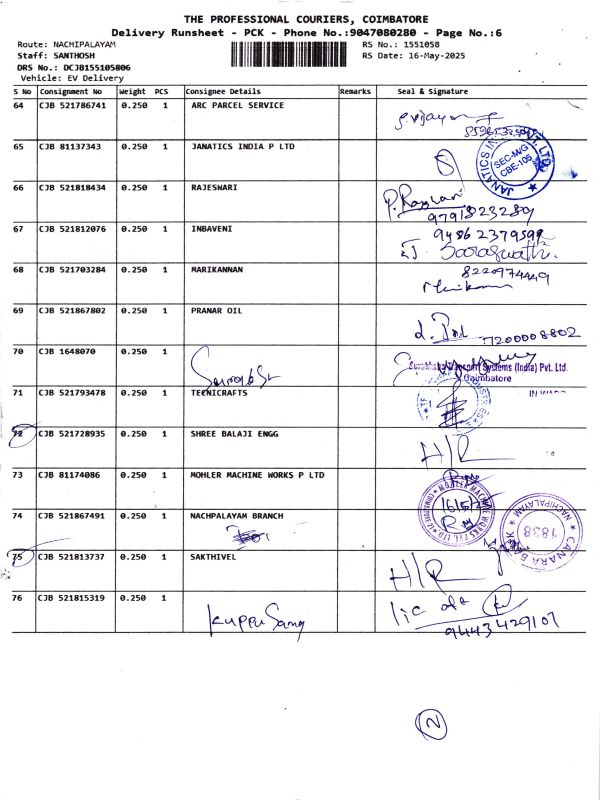 THE PROFESSIONAL COURIERS, COIMBATORE
Delivery Runsheet - PCK - Phone No.:9047080280 - Page No.:6
Route: NACHIPALAYAM
Staff: SANTHOSH
DRS No.: DCJB155105806
Vehicle: EV Delivery
RS No.: 1551058
RS Date: 16-May-2025
S No Consignment No Weight PCS Consignee Details Remarks Seal & Signature
64 CJB 521786741 0.250 1 ARC PARCEL SERVICE
65 CJB 81137343 0.250 1 JANATICS INDIA P LTD
JANATICS INDIA PVT. LTD.
SEC-M/G
CBE-105
66 CJB 521818434 0.250 1 RAJESWARI
9791823289
67 CJB 521812076 0.250 1 INBAVENI
Saraswathi
68 CJB 521703284 0.250 1 MARIKANNAN
8220974449
69 CJB 521867802 0.250 1 PRANAR OIL
7200008802
70 CJB 1648070 0.250 1
Systems (India) Pvt. Ltd.
Coimbatore
71 CJB 521793478 0.250 1 TECNICRAFTS
72 CJB 521728935 0.250 1 SHREE BALAJI ENGG
H/R
73 CJB 81174086 0.250 1 MOHLER MACHINE WORKS P LTD
MOHLER MACHINE WORKS PVT. LTD
16/5/25
74 CJB 521867491 0.250 1 NACHPALAYAM BRANCH
CANARA BANK
NACHIPALAYAM
1838
75 CJB 521813737 0.250 1 SAKTHIVEL
H/R
76 CJB 521815319 0.250 1
Kuppu Samy
9443429107
2